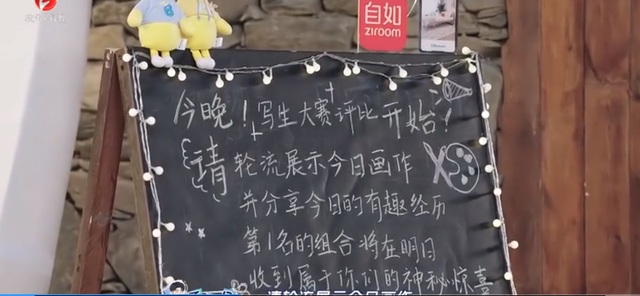 自如
ziroom
今晚！写生大赛评比开始！
请轮流展示今日画作
并分享今日的有趣经历
第1名的组合将在明日
收到属于你们的神秘惊喜
请轮流展示今日画作